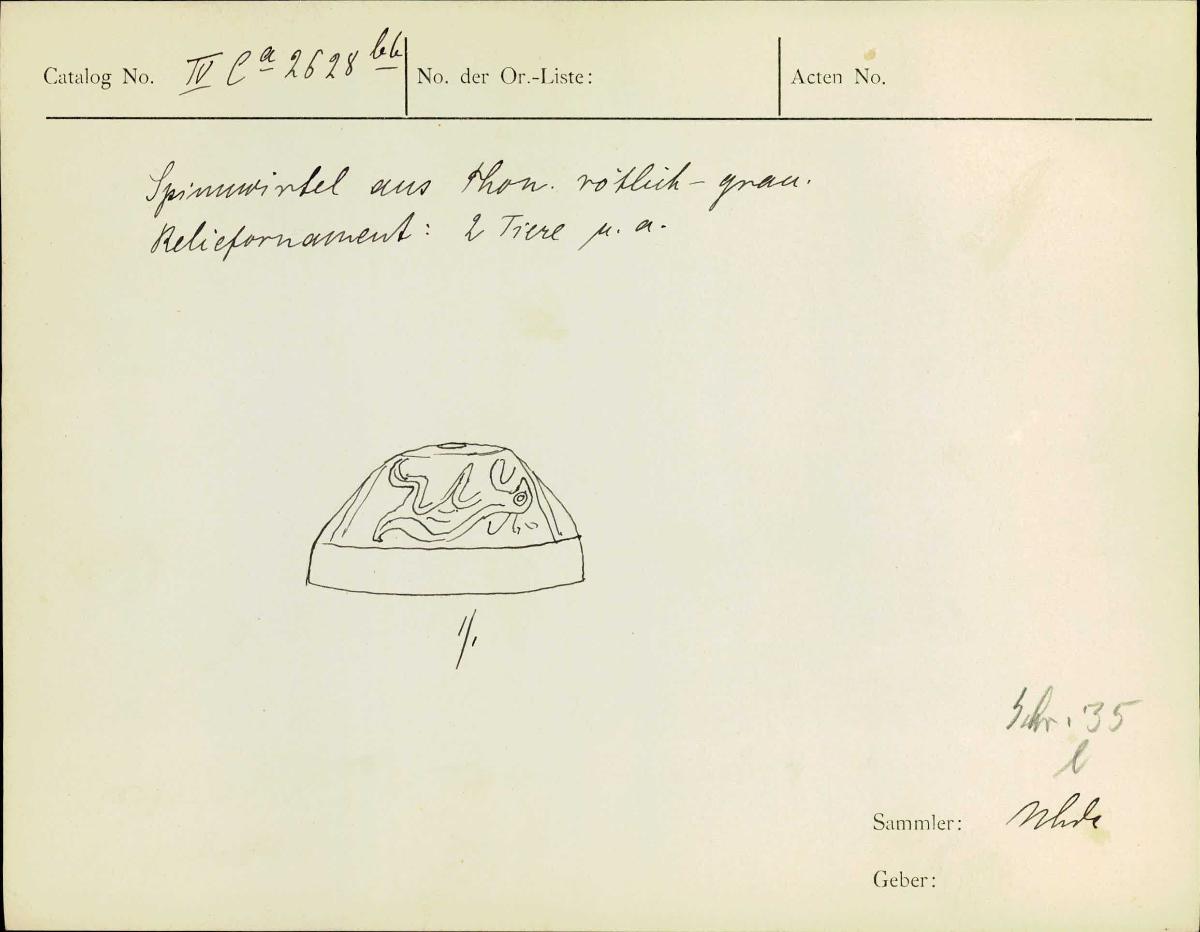 Catalog No. IV Ca 2628 bb
No. der Or.-Liste:
Acten No.
Spinnwirtel aus Thon. rötlich-grau.
Reliefornament: 2 Tiere u. a.
1/1
Schr. 35
l
Sammler: Uhde
Geber: